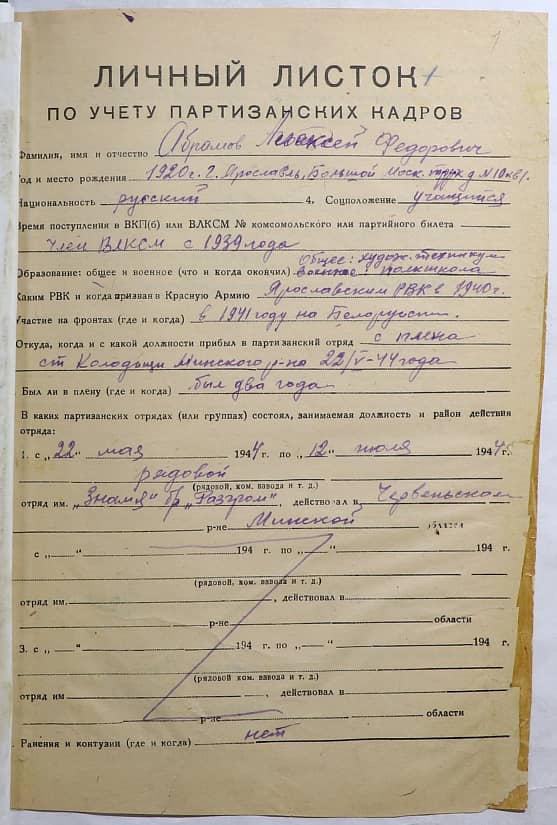 1
ЛИЧНЫЙ ЛИСТОК
ПО УЧЕТУ ПАРТИЗАНСКИХ КАДРОВ
Фамилия, имя и отчество Абрамов Алексей Федорович
Год и место рождения 1920 г. г. Ярославль, Большой Моск. д №10 кв 1.
Национальность русский 4. Соцположение учащийся
Время поступления в ВКП(б) или ВЛКСМ № комсомольского или партийного билета
Член ВЛКСМ с 1939 года
Общее: худож. техникум
Образование: общее и военное (что и когда окончил) военное: полкшкола
Каким РВК и когда призван в Красную Армию Ярославским РВК в 1940г.
Участие на фронтах (где и когда) в 1941 году на Белорусск.
Откуда, когда и с какой должности прибыл в партизанский отряд с плена
ст Колодищи Минского р-на 22/V-44 года
Был ли в плену (где и когда) был два года
В каких партизанских отрядах (или группах) состоял, занимаемая должность и район действия
отряда:
1. с „22" мая 1944 г. по „12" июля 1944 г.
рядовой
(рядовой, ком. взвода и т. д.)
отряд им. „Знамя" бр „Разгром", действовал в Червеньском
р-не Минской области
с „ " 194 г. по „ " 194 г.
(рядовой, ком. взвода и т. д.)
отряд им. , действовал в
р-не области
3. с „ " 194 г. по „ " 194 г.
(рядовой, ком. взвода и т. д.)
отряд им , действовал в
р-не области
Ранения и контузии (где и когда) нет